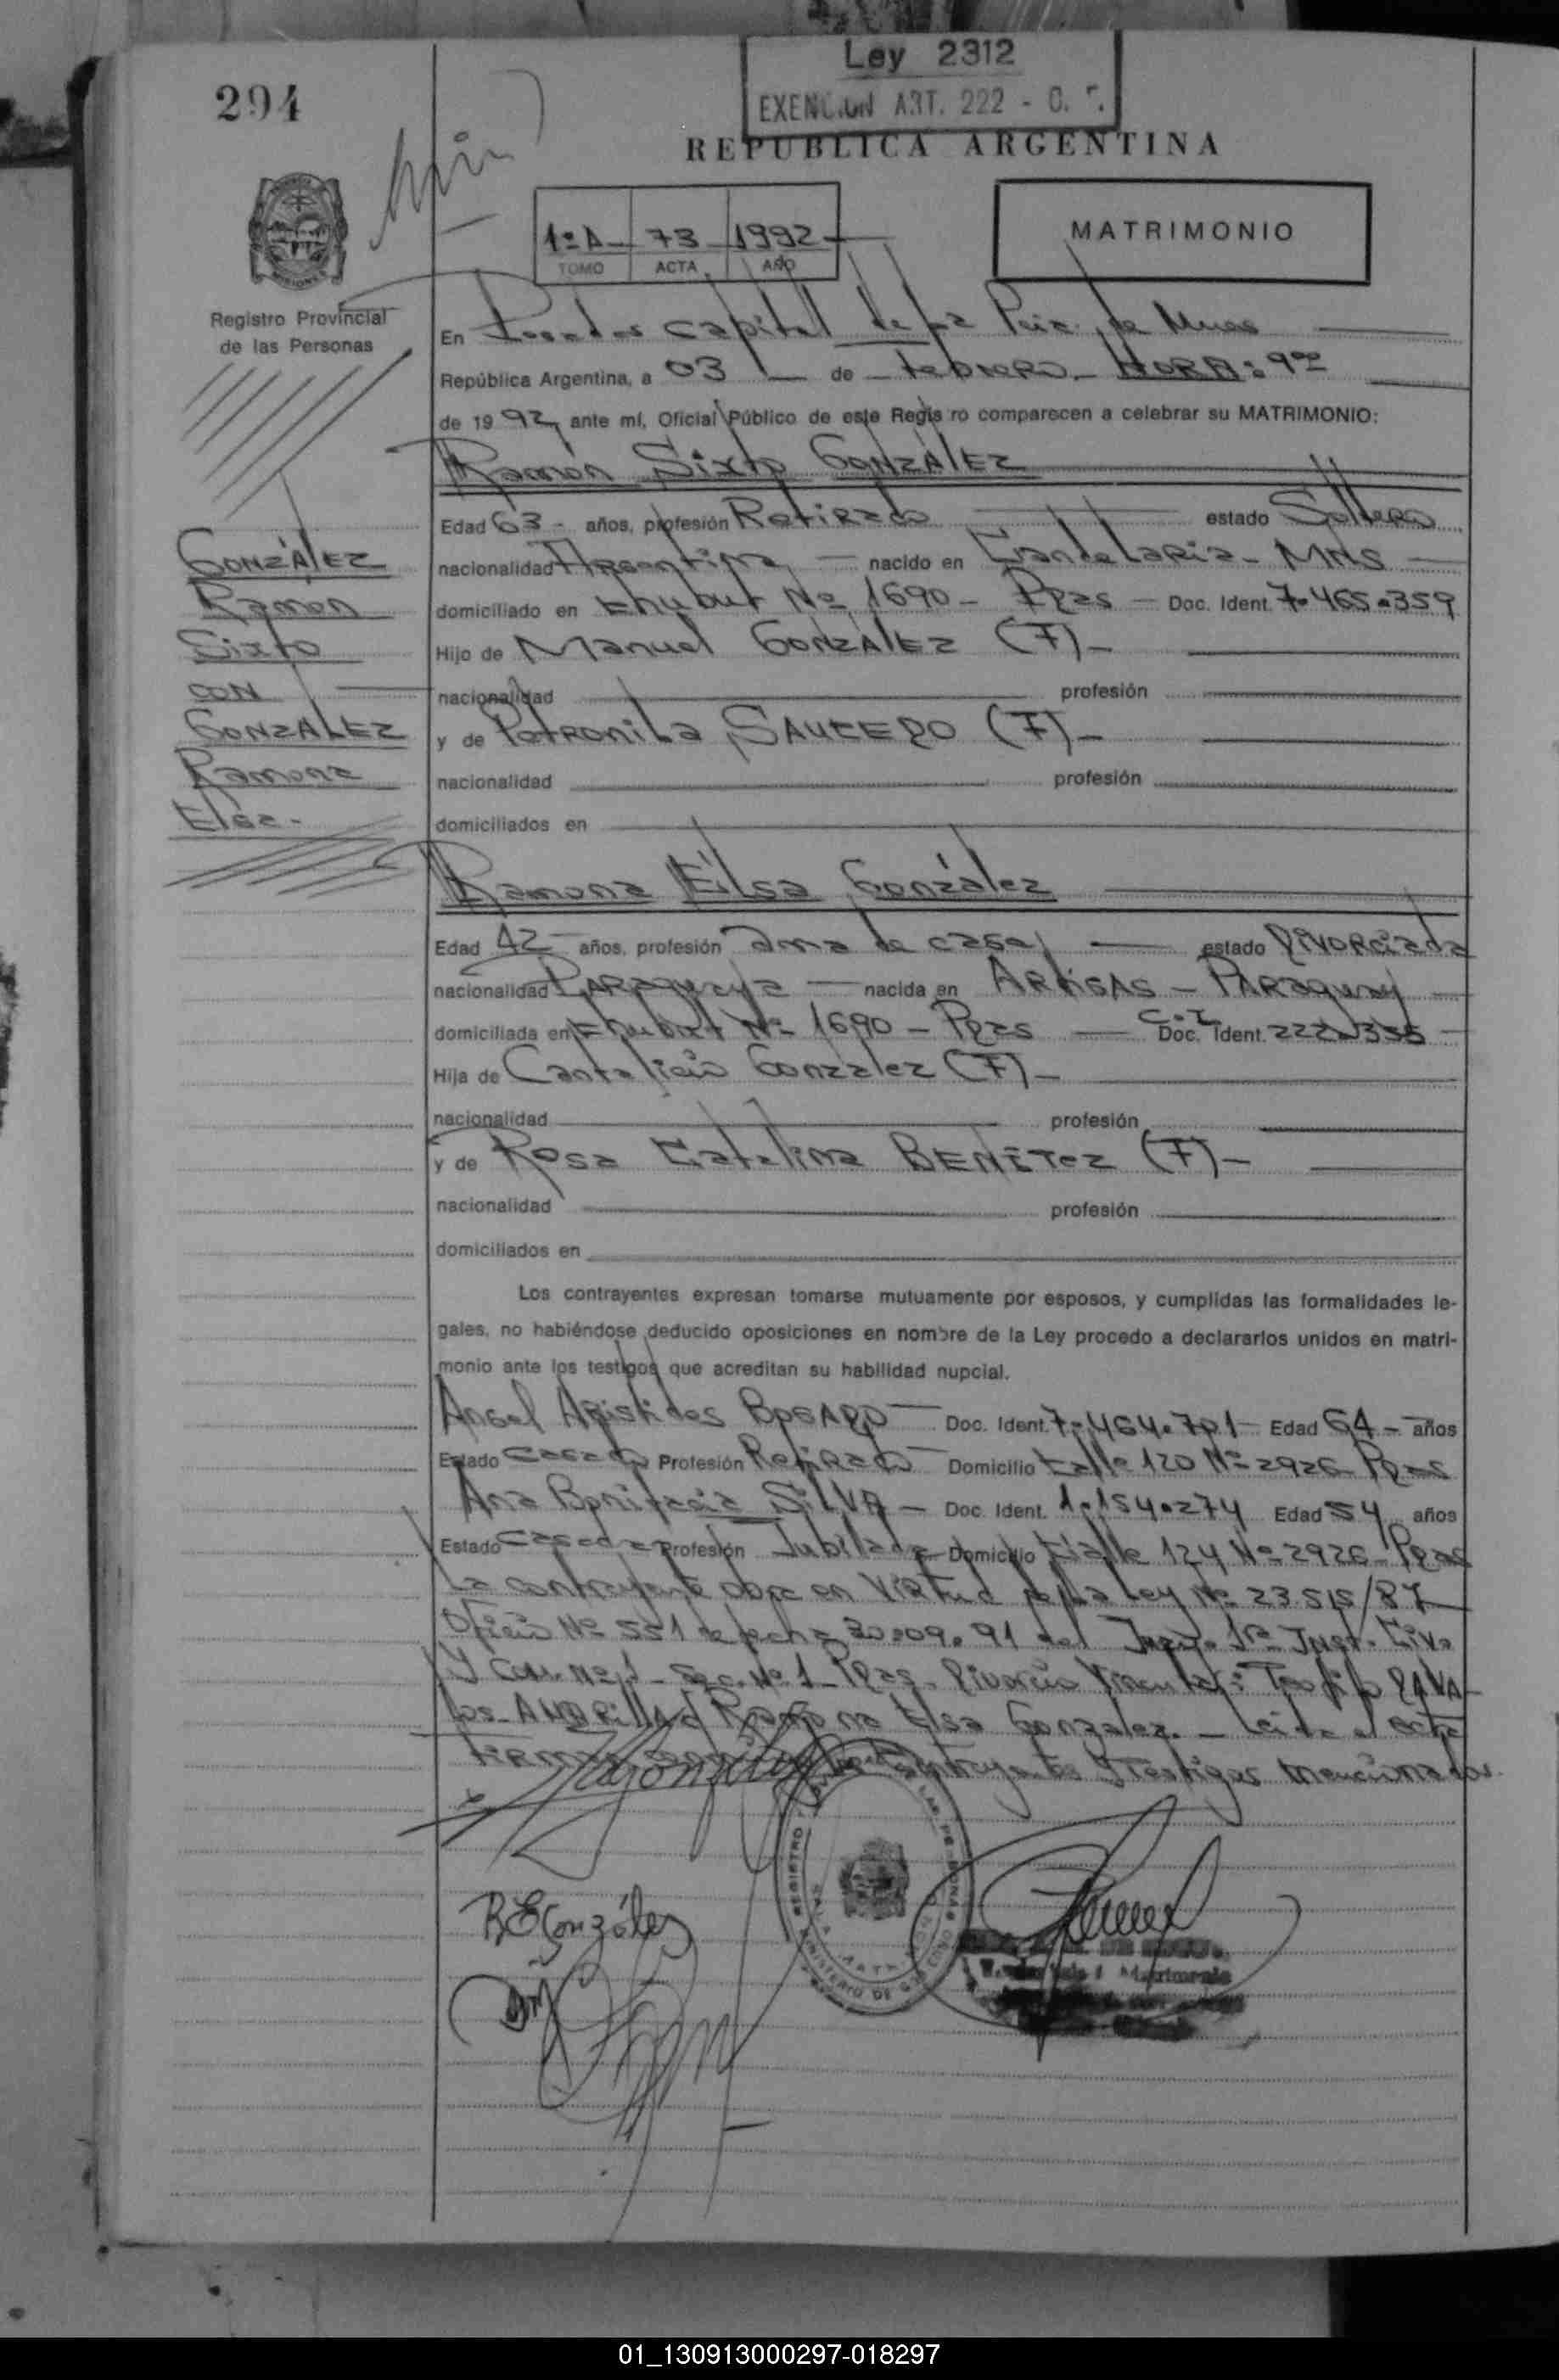 Ley 2312
EXENCION ART. 222 - C.
294
REPUBLICA ARGENTINA
1º A - 73 - 1992 -
TOMO ACTA AÑO
MATRIMONIO
Registro Provincial
de las Personas
En Posadas capital de la Pcia. de Mnes
República Argentina, a 03 de Febrero - HORA: 9 00
de 1992, ante mí, Oficial Público de este Registro comparecen a celebrar su MATRIMONIO:
Ramón Sixto GONZÁLEZ
Edad 63 - años, profesión Retirado estado Soltero
nacionalidad Argentina - nacido en Candelaria - MNS
domiciliado en Chubut Nº 1690 - Pdas - Doc. Ident. 7.465.359
Hijo de Manuel GONZÁLEZ (F) -
nacionalidad profesión
y de Petronila SAUCEDO (F) -
nacionalidad profesión
domiciliados en
GONZÁLEZ
Ramón
Sixto
CON
GONZALEZ
Ramona
Elsa -
Ramona Elsa González
Edad 42 - años, profesión ama de casa estado Divorciada
nacionalidad PARAguaya - nacida en ARtiGAS - PARAguay
domiciliada en Chubut Nº 1690 - Pdas - C.I. Doc. Ident. 222.335 -
Hija de Cantalicio Gonzalez (F) -
nacionalidad profesión
y de Rosa Catalina BENÍTez (F) -
nacionalidad profesión
domiciliados en
Los contrayentes expresan tomarse mutuamente por esposos, y cumplidas las formalidades le-
gales, no habiéndose deducido oposiciones en nombre de la Ley procedo a declararlos unidos en matri-
monio ante los testigos que acreditan su habilidad nupcial.
Angel Aristides BOGADO - Doc. Ident. 7.464.701 - Edad 64 - años
Estado Casado Profesión Retirado - Domicilio Calle 120 Nº 2926 Pdas
Ana Bonifacia SILVA - Doc. Ident. 1.154.274 Edad 54 años
Estado casada Profesión Jubilada - Domicilio Calle 124 Nº 2926 - Pdas
La contrayente obra en Virtud de la Ley Nº 23.515/87
Oficio Nº 551 de fecha 30.09.91 del Juzg. 1ra Inst. Civ.
y Com. Nº 1 - Sec. Nº 1 - Pdas. Divorcio Vincular: Teofilo
Ramona Elsa Gonzalez. - Leida el acta
firman los contrayentes y testigos mencionados.
R E González
REGISTRO
MINISTERIO DE GOBIERNO
Matrimonio
01_130913000297-018297